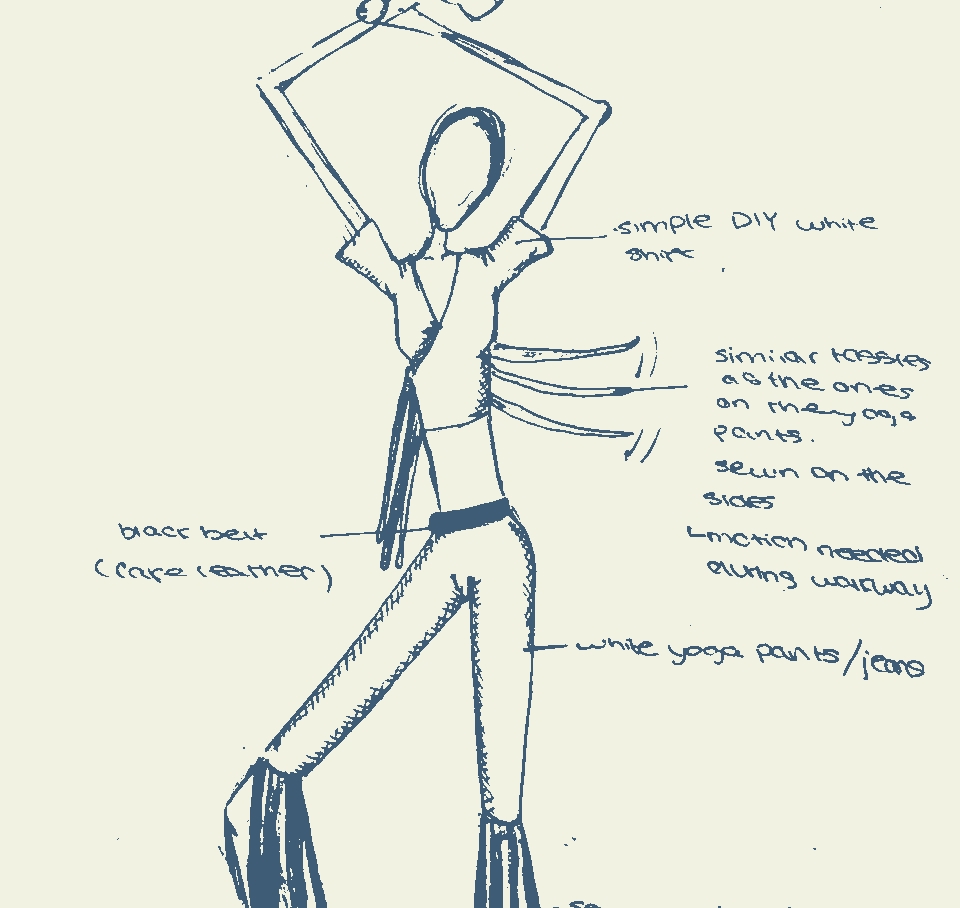 simple DIY white
shirt
similar tassles
as the ones
on the yoga
pants.
sewn on the
sides
motion needed
during walkway
black belt
(fake leather)
white yoga pants/jeans